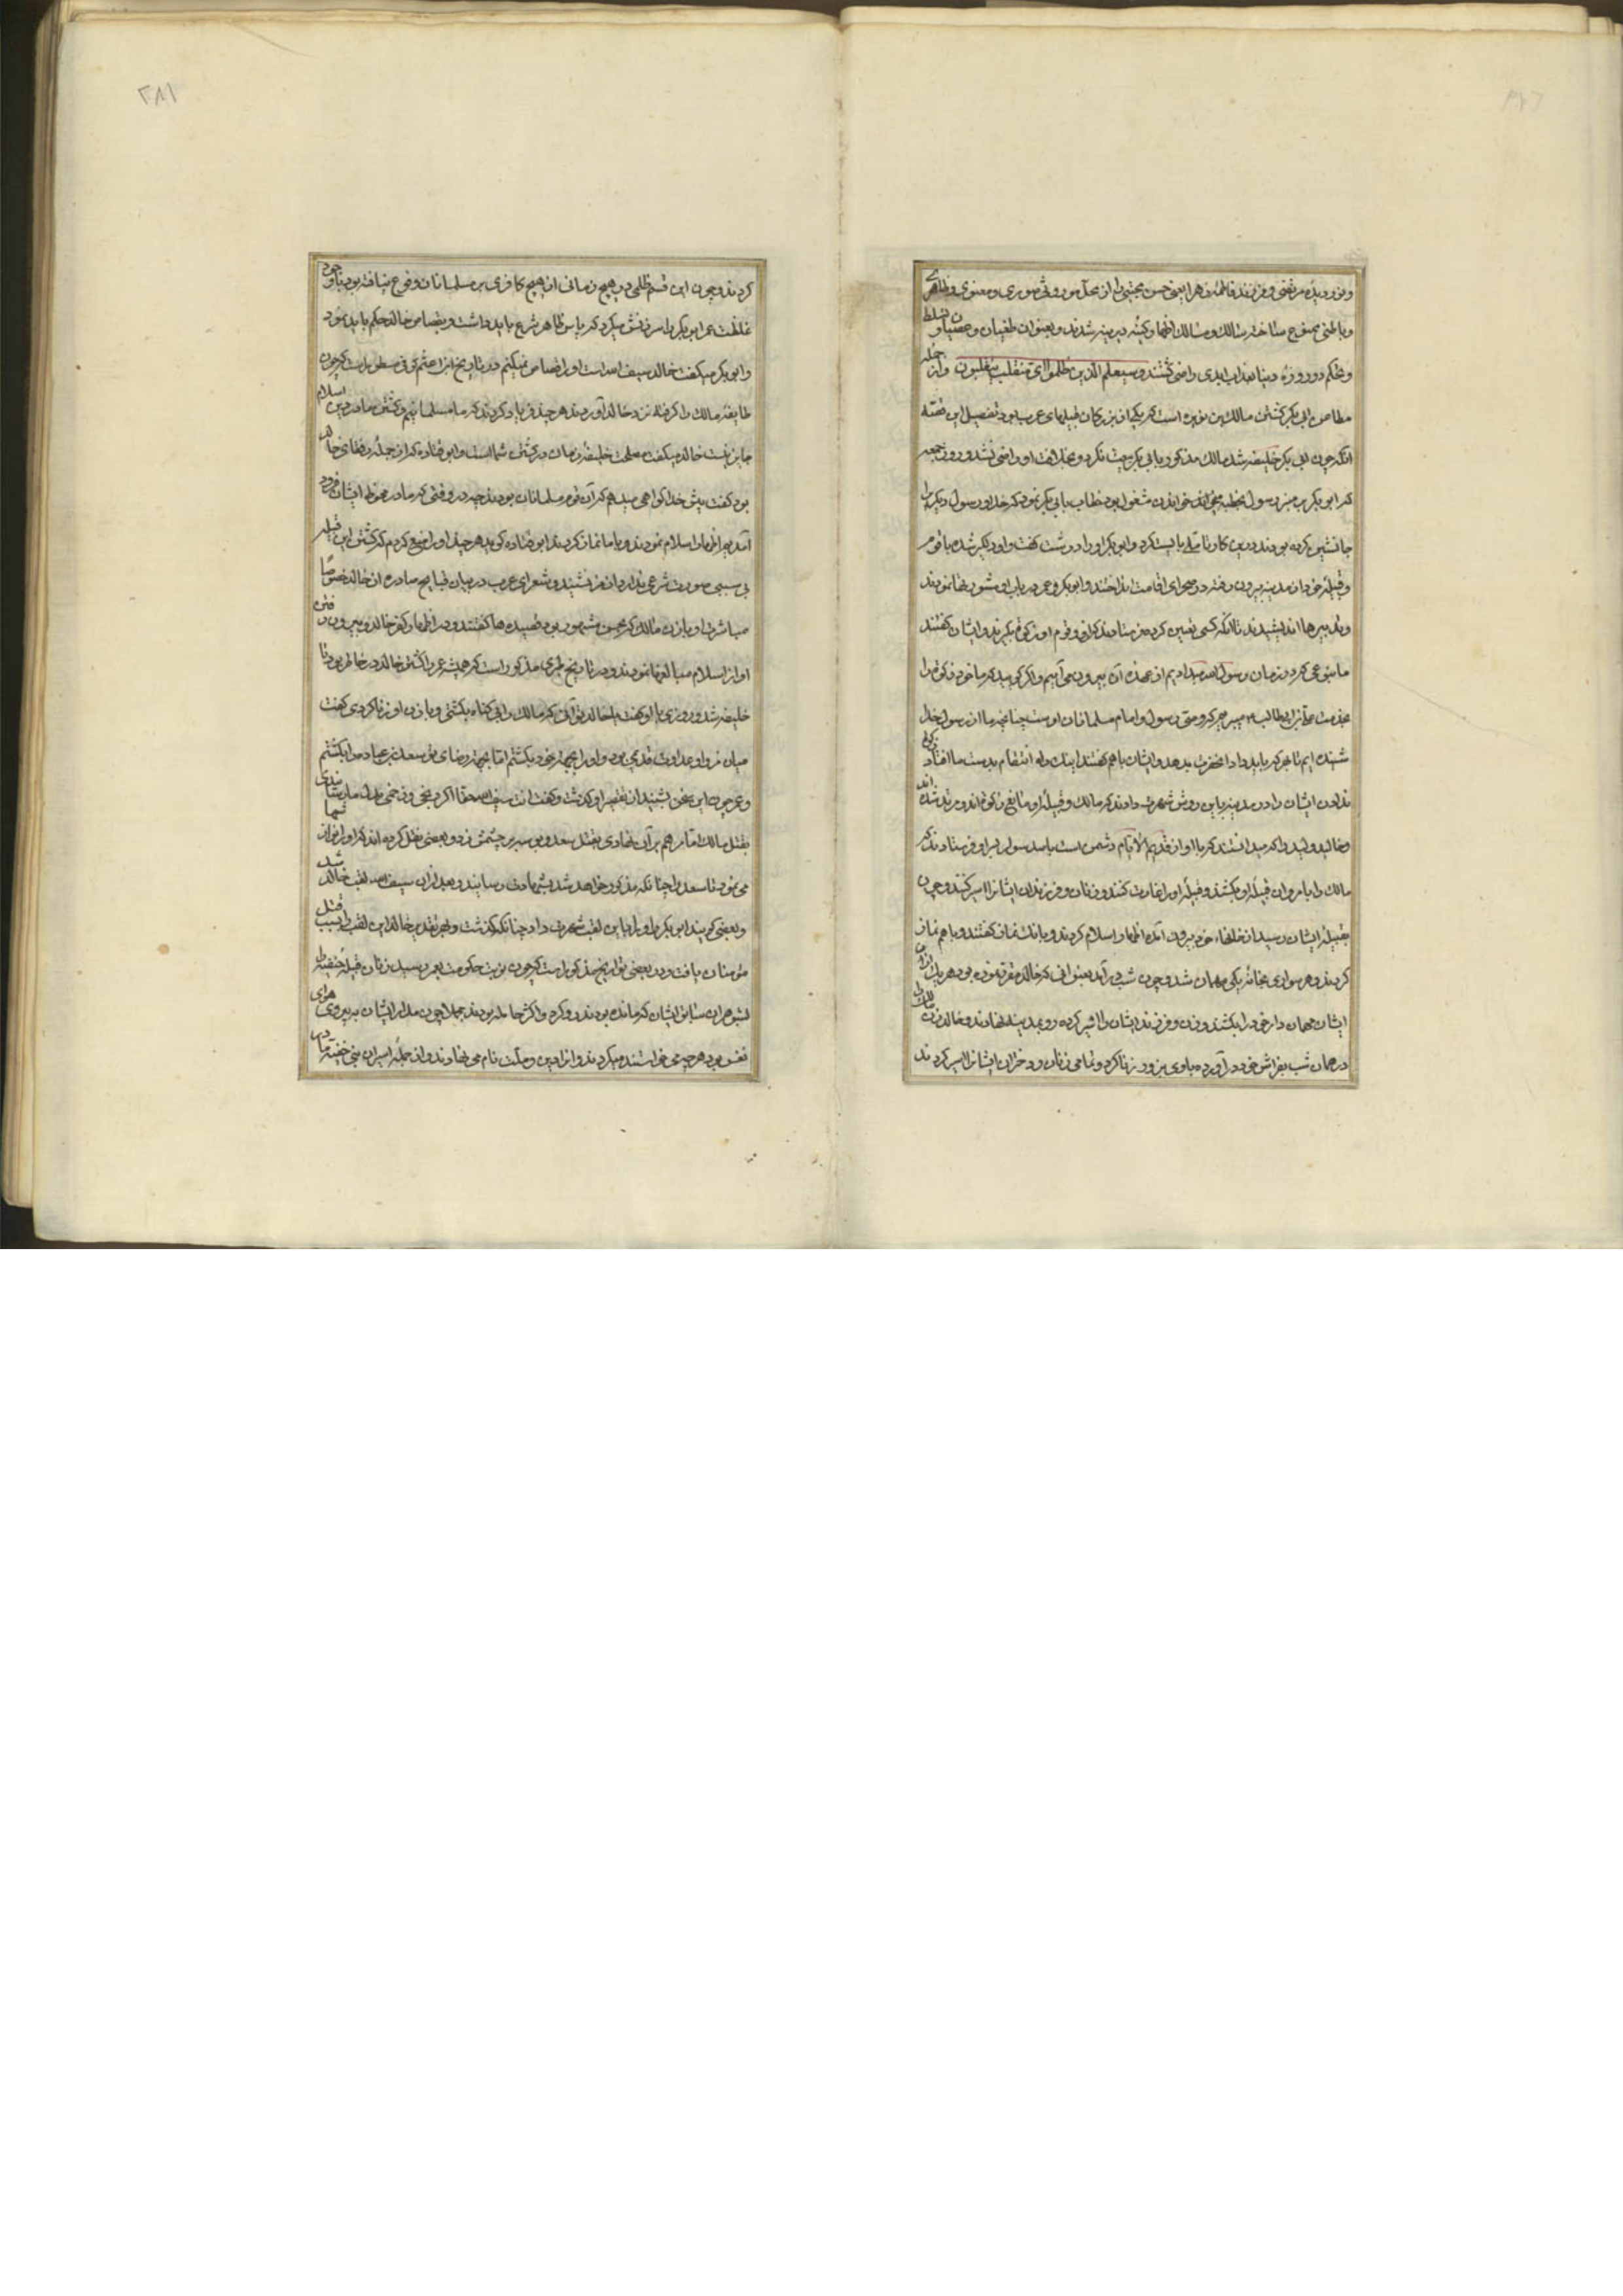 و نور دیدهٔ مرتضی و فرزند فاطمهٔ زهرا یعنی حسن مجتبی را از محل موروثی صوری و معنوی و ظاهری
و باطنی ممنوع ساخته سالک مسالک اظهار کینهٔ دیرینه شدند و بعنوان طغیان و عصیان تسلط
و تحکم دو روزهٔ دنیا بعذاب ابدی راضی گشتند و سیعلم الذین ظلموا ای منقلب ینقلبون و از جمله
مطاعن ابی بکر کشتن مالک بن نویره است که یکی از بزرکان قبیلهای عرب بود تفصیل این قصه
آنکه چون ابی بکر خلیفه شد مالک مذکور بابی بکر بیعت نکرد و بخلافت او راضی نشد و روز جمعه
که ابو بکر بر منبر رسول بخطبه خواندن مشغول بود خطاب بابی بکر نمود که خدا و رسول دیکری را
جانشین کرده بودند درین کار تاملی بایست کرد و ابو بکر او را درشت کفت و او دلکیر شده با قوم
و قبیلهٔ خود از مدینه بیرون رفته در صحرای اقامت انداختند و ابو بکر و عمر در باب او مشورتها نمودند
و تدبیرها اندیشیدند تا آنکه کسی تعین کرده فرستادند که از و قوم او زکوة بکیرند و ایشان کفتند
ما بنوعی که در زمان رسول الله میدادیم از عهدهٔ آن بیرون می آییم و اکر کویید که ما خود زکوة را
بخدمت علی بن ابی طالب میبریم که وصی رسول و امام مسلمانان اوست چنانچه ما از رسول خدا
شنیده ایم تا هر که باید داد آنحضرت بدهد و ایشان با هم کفتند اینک راه انتقام بدست ما افتاد
ندادن ایشان را در مدینه باین روش شهرت دادند که مالک و قبیلهٔ او مانع زکوة اند و مرتد شده اند
و خالد ولید را که میدانستند که با او از قدیم الایام دشمن است با صد سوار بر او فرستادند که
مالک را با مردان قبیلهٔ او بکشند و قبیلهٔ او را غارت کنند و زنان و فرزندان ایشانرا اسیر کنند و چون
بقبیلهٔ ایشان رسید از خانهاء خود بیرون آمده اظهار اسلام کردند و بانک نماز کفتند و با هم نماز
کردند و هر سواری بخانهٔ یکی مهمان شد و چون شب در آمد بعنوانی که خالد مقرر نموده بود هر یک از آن
ایشان مهمان دار خود را بکشتند و زن و فرزند ایشان را اسیر کرده رو بمدینه نهادند و خالد زن مالک را
در همان شب بفراش خود در آورده با وی بزور زنا کرد و تمامی زنان و دختران ایشانرا اسیر کردند
۲۸۱
کردند و چون این قسم ظلمی در هیچ زمانی از هیچ کافری بر مسلمانان وقوع نیافته بود با وجود
غلظت عمر ابو بکر را سرزنش میکرد که پاس ظاهر شرع باید داشت و بقصاص خالد حکم باید نمود
و ابو بکر میکفت خالد سیف الله است او را قصاص نمیکنم در تاریخ ابن اعثم کوفی مسطور است که چون
طایفهٔ مالک را کرفته نزد خالد آوردند هر چند فریاد کردند که ما مسلمانیم و کشتن ما در دین اسلام
جایز نیست خالد میکفت مصلحت خلیفهٔ زمان در کشتن شماست و ابو قتاده که از جملهٔ رفقای خالد
بود کفت پیش خدا کواهی میدهم که آن قوم مسلمانان بودند چه در وقتی که ما در حوالی ایشان فرود
آمدیم اظهار اسلام نمودند و با ما نماز کردند ابو قتاده کوید هر چند او را منع کردم که کشتن این قبیله
بی سببی صورت شرعی ندارد از من نشنید و شعرای عرب در بیان قبایح صادره از خالد خصوصا
مباشرت او با زن مالک که بحسن مشهور بود قصیده ها کفتند و در اظهار کفر خالد و بیرون رفتن
او از اسلام مبالغها نمودند و در تاریخ طبری مذکور است که همیشه عمر را کشتن خالد در خاطر بود تا
خلیفه شد و روزی با او کفت یا خالد تو آنی که مالک را بی کناه بکشتی و با زن او زنا کردی کفت
میان من و او عداوت قدیمی بود و او را بجهة خود بکشتم اما بجهة رضای تو سعد بن عباده را بکشتم
و عمر چون این سخن بشنید از تقصیر او کذشت و کفت انت سیف الله حقا اکر دخی و زخمی بدل ما رسانیدی
بقتل مالک اما مرهم بر آن نهادی بقتل سعد و بوسه بر چشمش زد و بعضی نقل کرده اند که او را نوازش
می نمود تا سعد را چنانکه مذکور خواهد شد بشهادت رسانید و بعد از آن سیف الله لقب خالد شد
و بعضی کویند ابو بکر او را باین لقب شهرت داد چنانکه کذشت و بهر تقدیر خالد این لقب را بسبب قتل
مؤمنان یافت و در بعضی تواریخ مذکور است که چون نوبت حکومت بعمر رسید زنان قبیلهٔ حنفیه را
بشوهران سابق ایشان که مانده بودند رد کرد و اکثر حامله بودند مجملا چون مدار ایشان بر پیروی هوای
نفس بود هر چه می خواستند میکردند و آنرا دین و ملت نام می نهادند و از جملهٔ اسیران بنی حنفیه مادر